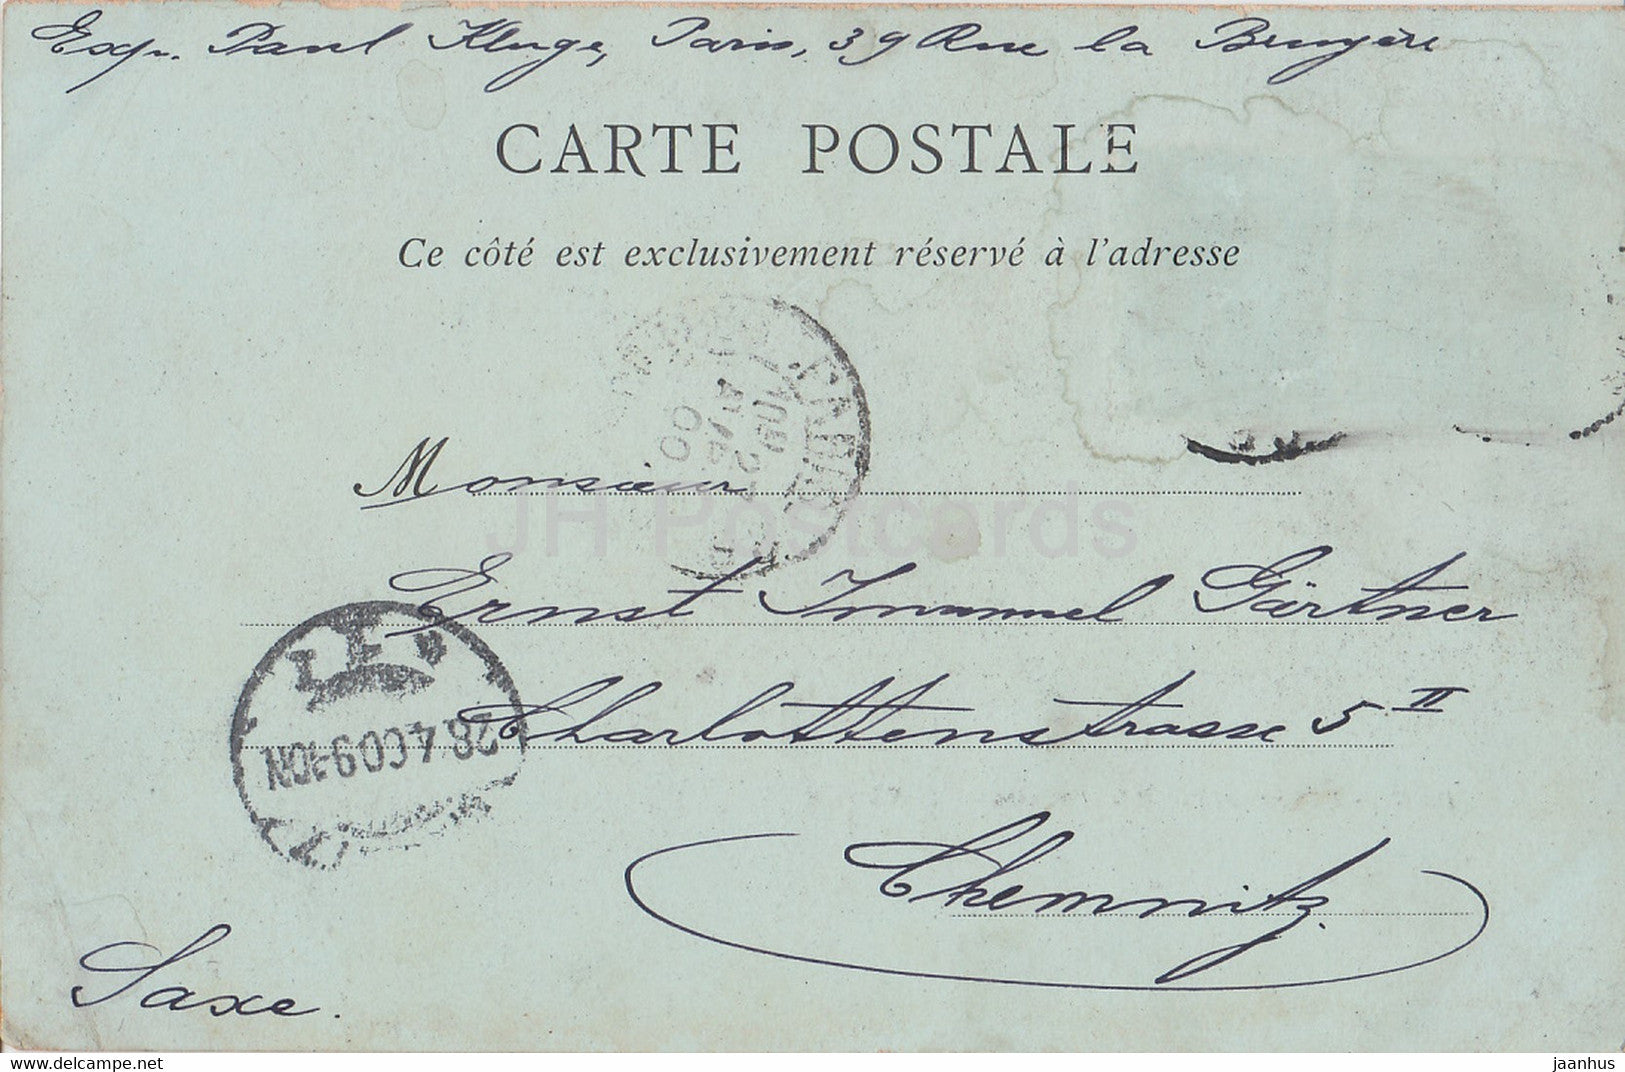 Exp. Paul Kluge, Paris, 39 Rue la Bruyère
CARTE POSTALE
Ce côté est exclusivement réservé à l'adresse
Monsieur
JH Postcards
Ernst Immanuel Gärtner
Charlottenstrasse 5 II
28.4.00 9-10N
Chemnitz.
Saxe.
hippostcard.com
jaanhus